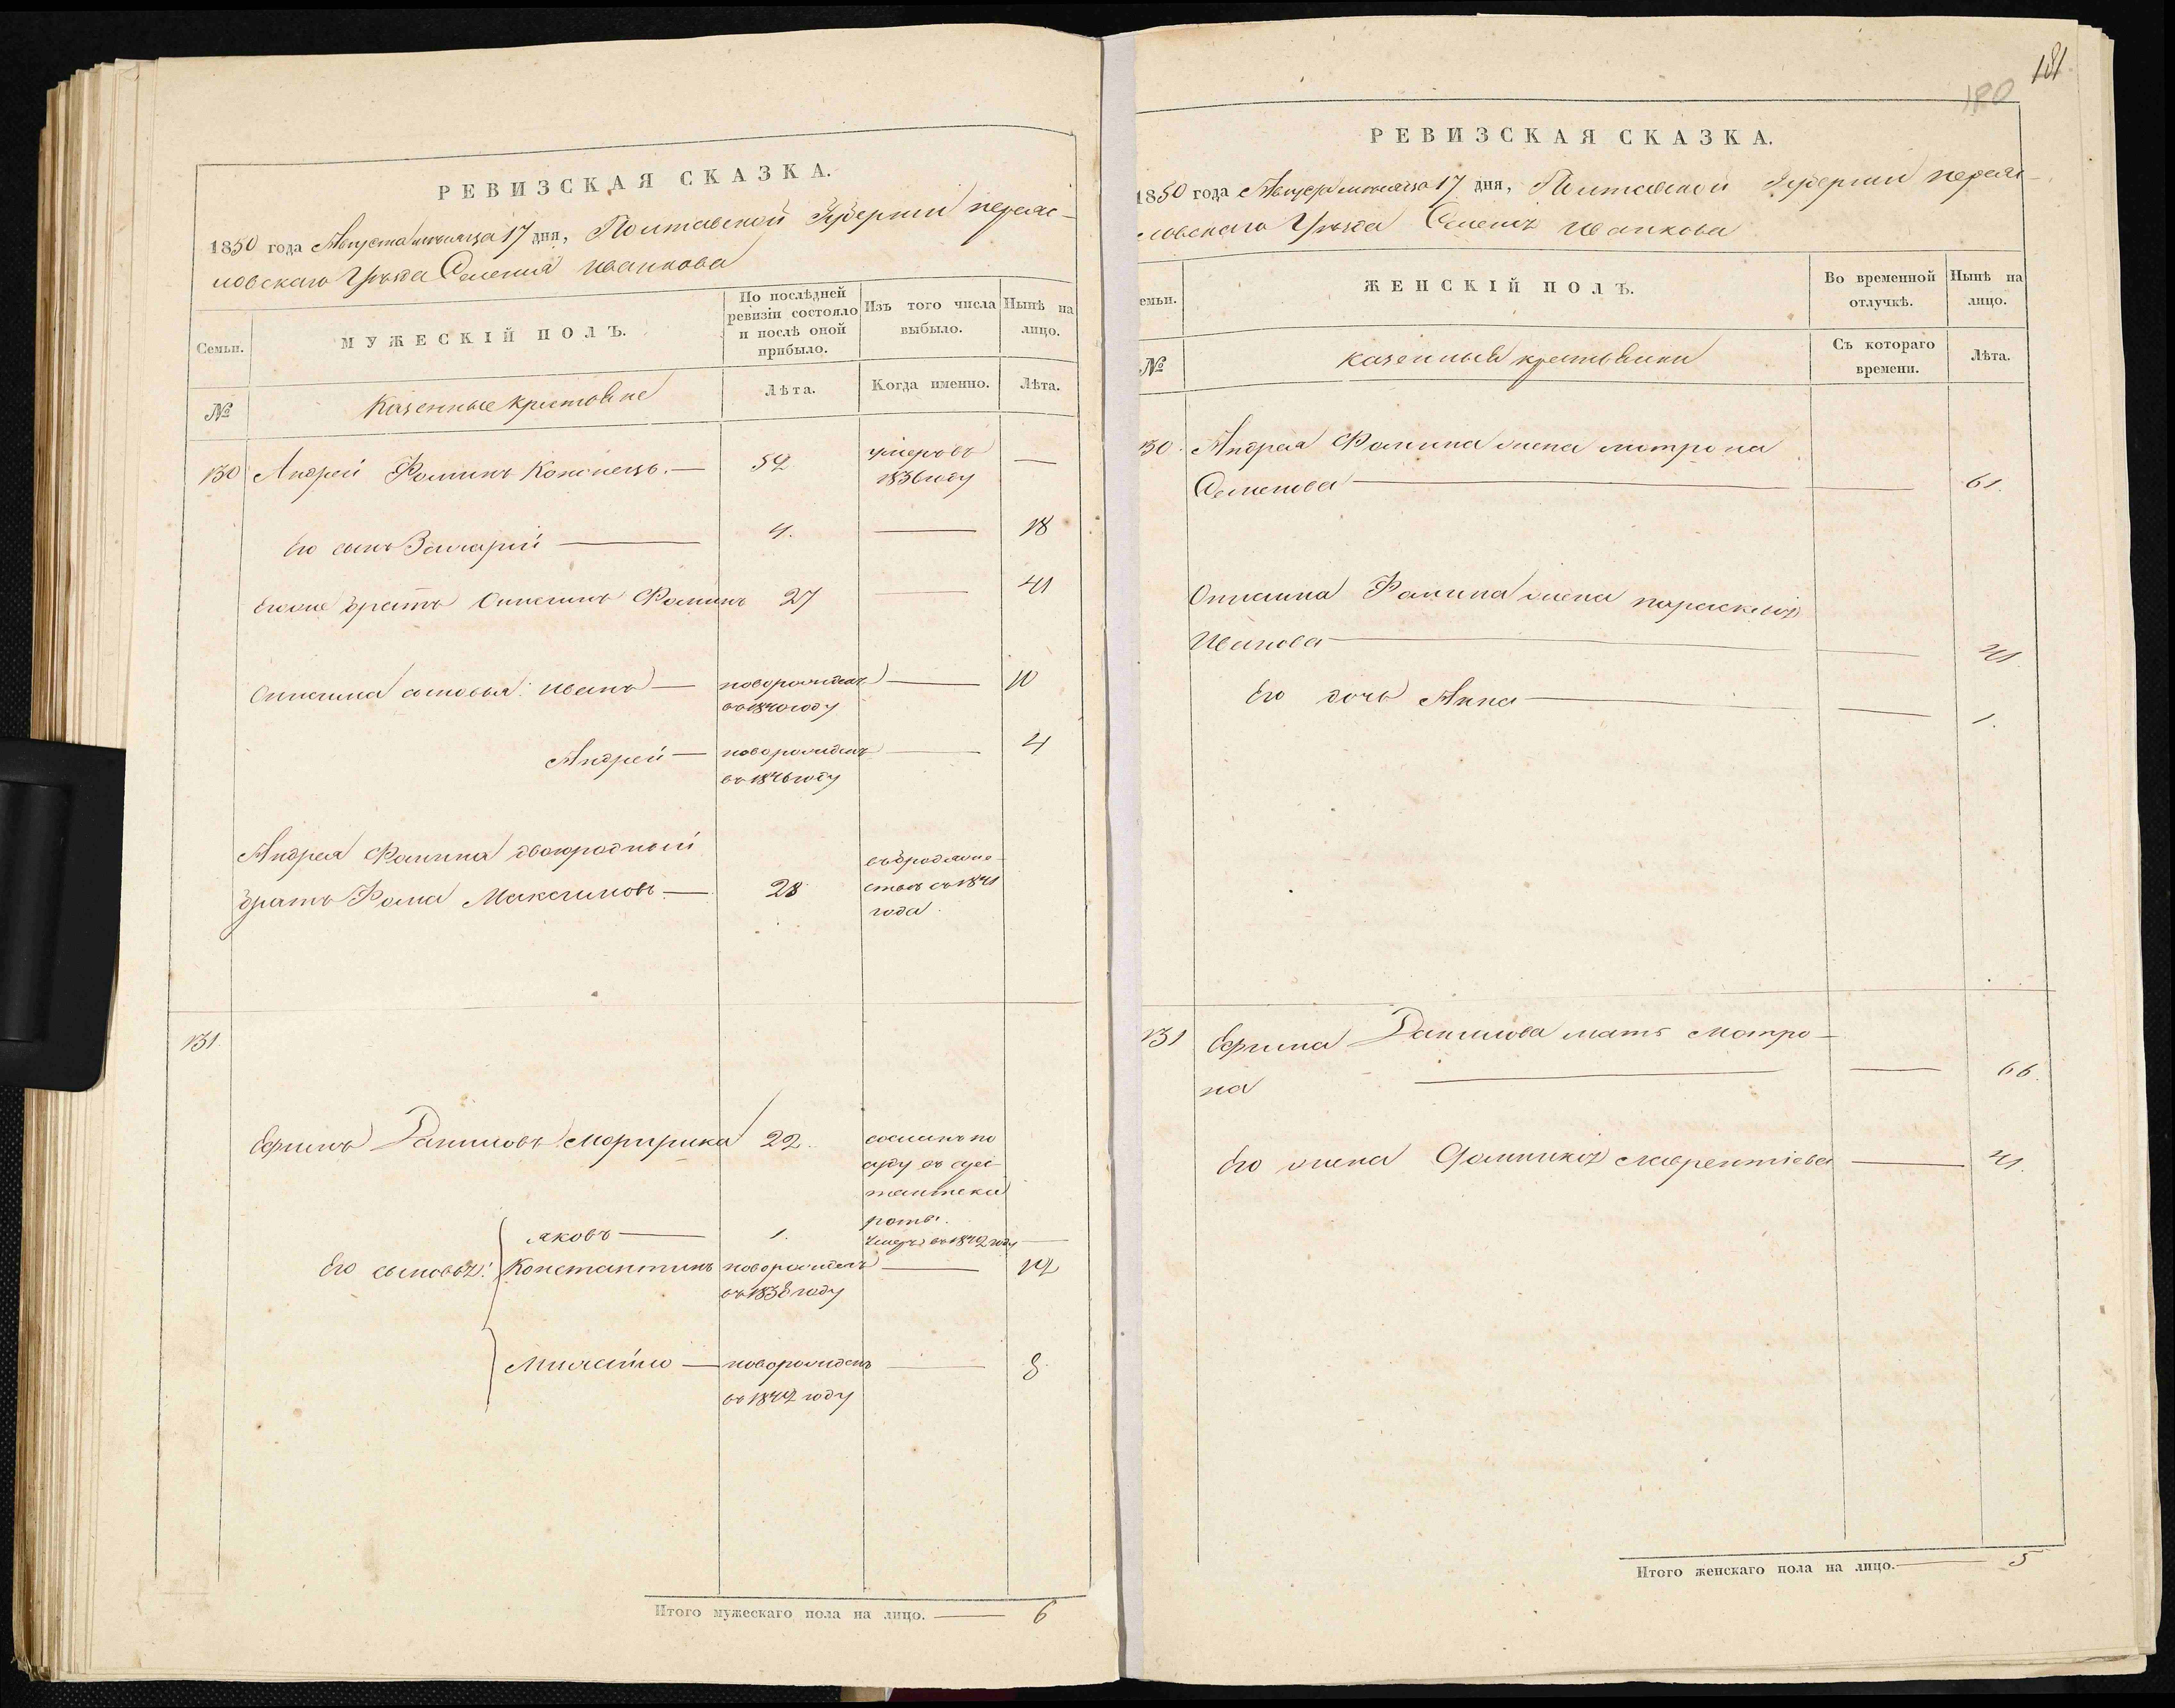 РЕВИЗСКАЯ СКАЗКА.
1850 года Августа месяца 17 дня, Полтавской Губернии переяс-
ловскаго Уѣзда Селенія Иванкова
Семьи.
МУЖЕСКІЙ ПОЛЪ.
По послѣдней ревизіи состояло и послѣ оной прибыло.
Изъ того числа выбыло.
Нынѣ на лицо.
№
Казенные крестьяне
Лѣта.
Когда именно.
Лѣта.
130 Андрей Фоминъ — 52 умеръ въ —
1836 году
Его сынъ Захарій — 4. — 18
Его же братъ Онисимъ Фоминъ 27 — 41
Онисима сыновья: Иванъ — новорожденъ — 10
въ 1840 году
Андрей — новорожденъ — 4
въ 1846 году
Андрея Фомина двоюродный
братъ Фома Максимовъ — 28 въ бродяже-
ствѣ съ 1841
года.
131
Ефимъ Даниловъ 22. сосланъ по
суду въ арес-
тантскія
роты.
Яковъ — 1. Умеръ въ 1842 году —
Его сыновья: Константинъ новорожденъ — 12
въ 1838 году
Михайло — новорожденъ — 8
въ 1842 году
Итого мужескаго пола на лицо. — 6
181
180
РЕВИЗСКАЯ СКАЗКА.
1850 года Августа месяца 17 дня, Полтавской Губернии переяс-
ловскаго Уѣзда Селенія Иванкова
емьи.
ЖЕНСКІЙ ПОЛЪ.
Во временной отлучкѣ.
Нынѣ на лицо.
№
казенныя крестьянки
Съ котораго времени.
Лѣта.
130. Андрея Фомина жена мотрона
Семенова — — 61.
Онисима Фомина жена параскевія
Иванова — — 41.
Его дочь Анна — — 1.
131 Ефима Данилова мать Мотро-
на — — 66.
Его жена Домникія Лаврентіева — 41.
Итого женскаго пола на лицо. — 5